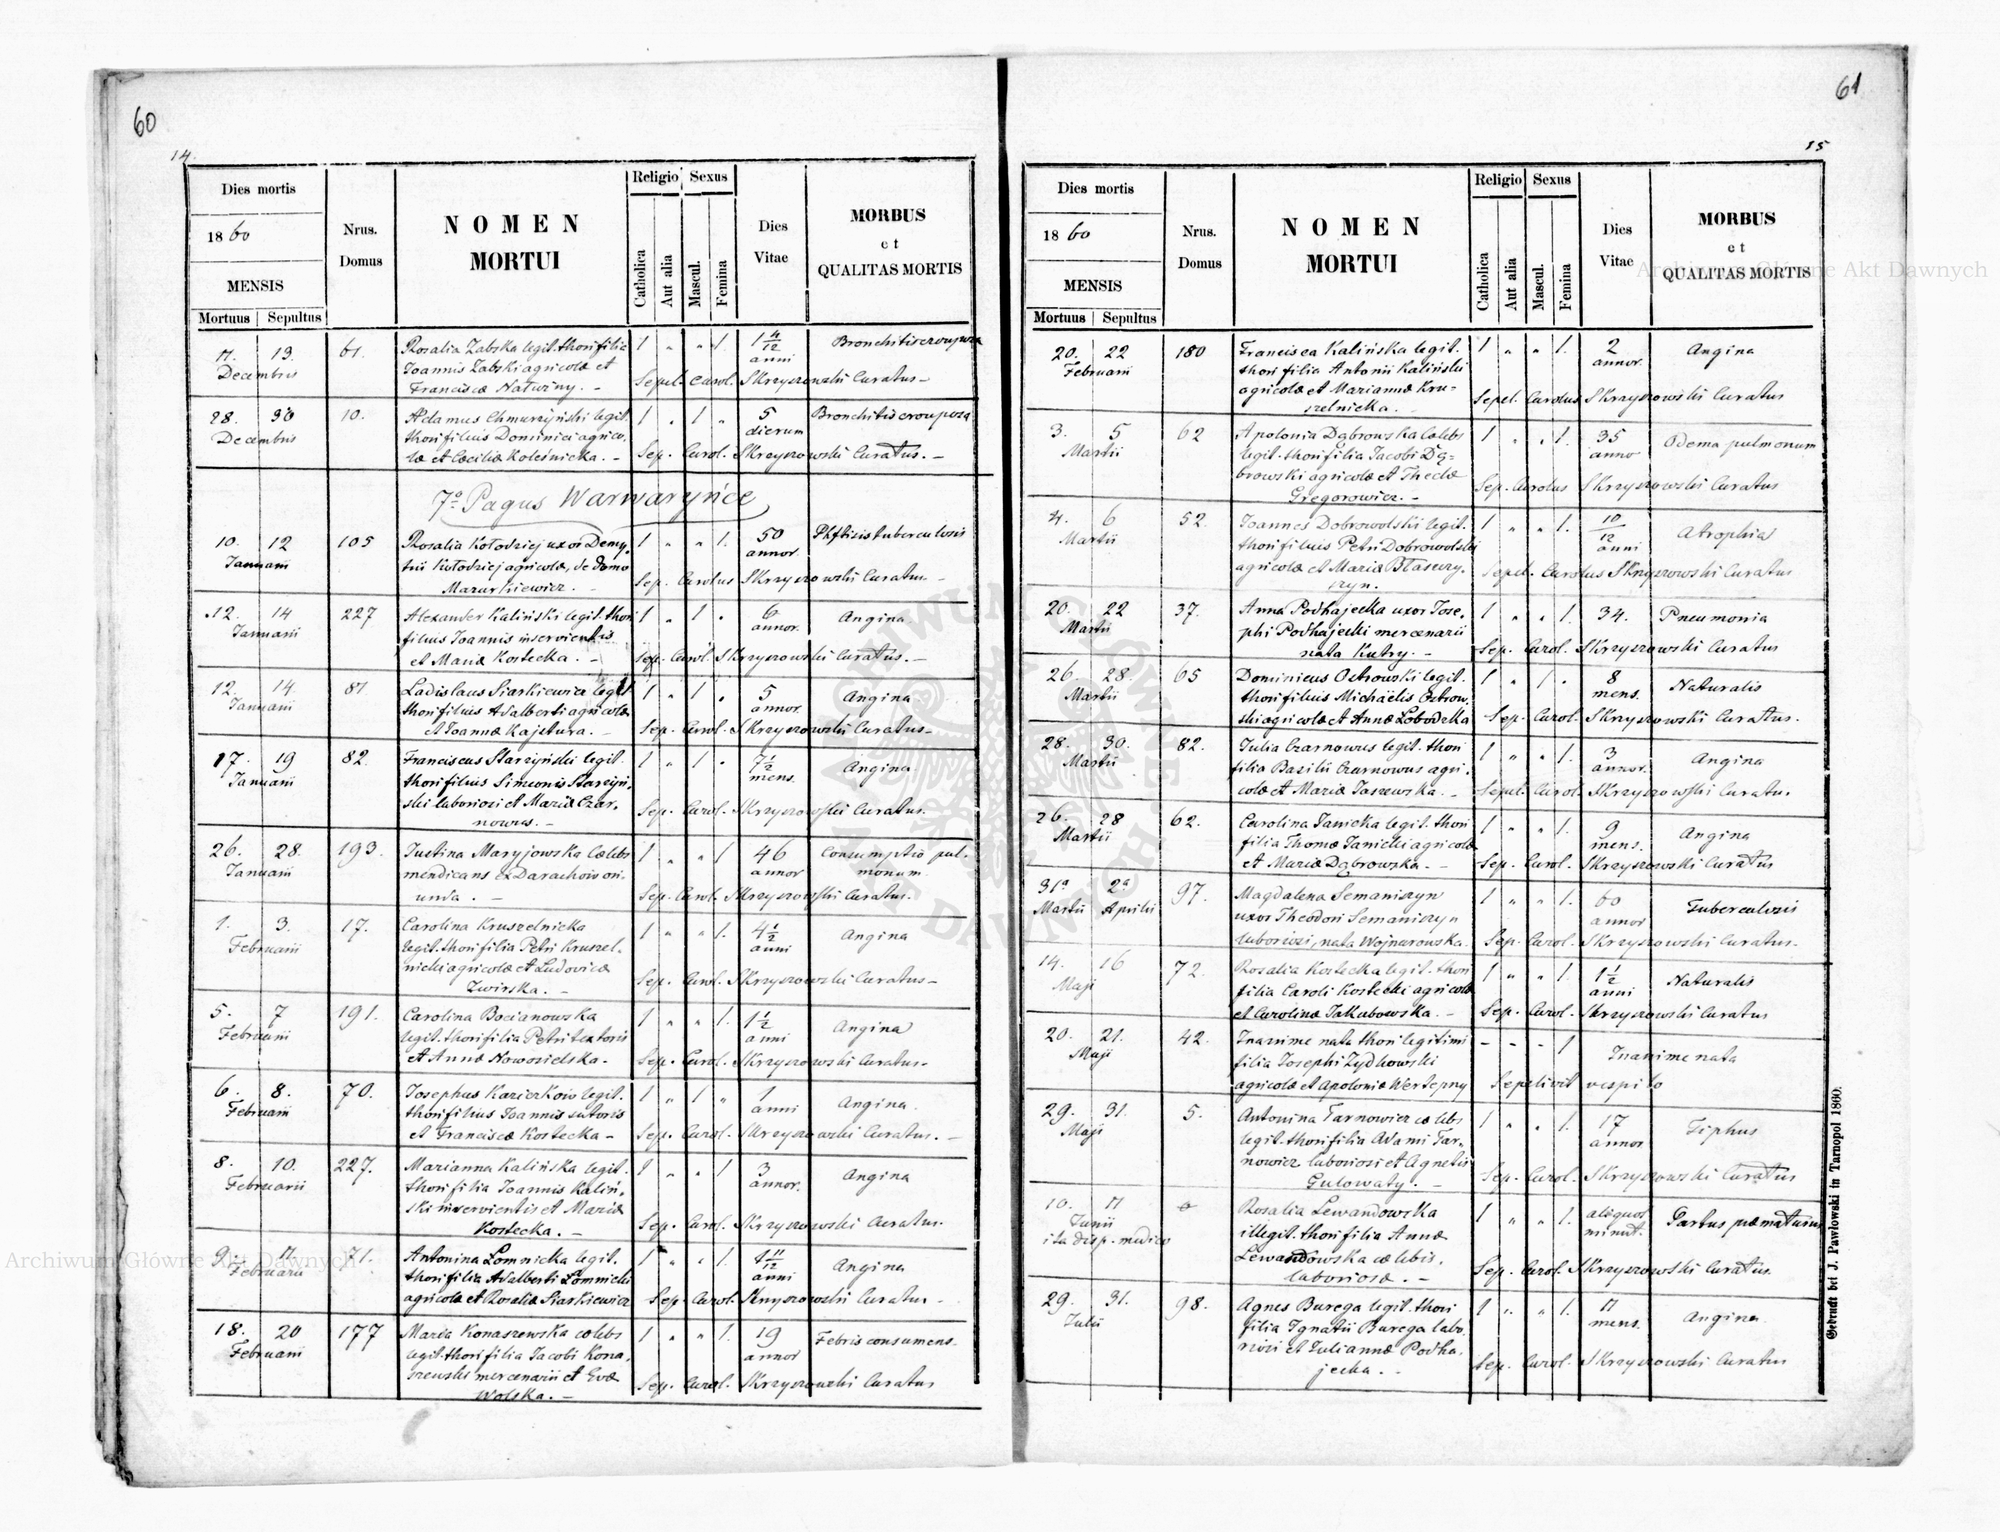 60
14.
Dies mortis
1860
MENSIS
Mortuus Sepultus
Nrus. Domus
NOMEN MORTUI
Religio Sexus
Catholica Aut alia Mascul. Femina
Dies Vitae
MORBUS et QUALITAS MORTIS
11. 19. 61. Rosalia Zabska legit. thori filia 1 " " 1 1 4/12 anni Bronchitis crouposa
Decembris Joannis Zabski agricolæ et
Franciscæ Naturny. - Sepel. Carol. Skrzyszowski Curatus -
28. 30 10. Adamus Chmurzyński legit. 1 " 1 " 5 dierum Bronchitis crouposa
Decembris thori filius Dominici agrico-
læ et Cæciliæ Koleśnicka. - Sep. Carol. Skrzyszowski Curatus. -
7o Pagus Warwaryńce
10. 12 105 Rosalia Kołodziej uxor Demy- 1 " " 1. 50 annor. Phthisis tuberculosis
Januarii trii Kołodziej agricolæ, de domo
Mazurkiewicz. - Sep. Carolus Skrzyszowski Curatus. -
12. 14 227 Alexander Kaliński legit. thori 1 " 1 " 6 annor. Angina
Januarii filius Joannis inservientis
et Mariæ Kostecka. - Sep. Carol. Skrzyszowski Curatus. -
12. 14. 81. Ladislaus Siarkiewicz legit 1 " 1 " 5 annor. Angina
Januarii thori filius Adalberti agricolæ
et Joannæ Kajetura. - Sep. Carol. Skrzyszowski Curatus -
17. 19 82. Franciscus Starzyński legit. 1 " 1 " 7 1/2 mens. Angina
Januarii thori filius Simeonis Starzyń-
ski laboriosi et Mariæ Czar-
nowus. - Sep. Carol. Skrzyszowski Curatus.
26. 28. 193. Justina Maryjowska cælebs 1 " " 1 46 annor Consumptio pul-
Januarii mendicans ex Darachow ori- monum
unda. - Sep. Carol. Skrzyszowski Curatus.
1. 3. 17. Carolina Kruszelnicka 1 " " 1. 4 1/2 anni Angina
Februarii legit. thori filia Petri Kruszel-
nicki agricolæ et Ludovicæ
Zwirska. - Sep. Carol. Skrzyszowski Curatus -
5. 7 191. Carolina Bocianowska 1 " " 1. 1 1/2 anni Angina
Februarii legit. thori filia Petri textoris
et Annæ Nowosielska. Sep. Carol. Skrzyszowski Curatus -
6. 8. 70. Josephus Kazierkow legit. 1 " 1 " 1 anni Angina
Februarii thori filius Joannis sutoris
et Franciscæ Kostecka - Sep. Carol. Skrzyszowski Curatus. -
8. 10. 227. Marianna Kalińska legit. 1 " " 1 3 annor. Angina
Februarii thori filia Joannis Kaliń-
ski inservientis et Mariæ
Kostecka. - Sep. Carol. Skrzyszowski Curatus.
9. 11 71. Antonina Łomnicka legit. 1 " " 1 4 11/12 anni Angina
Februarii thori filia Adalberti Łomnicki
agricolæ et Rosaliæ Siarkiewicz Sep. Carol. Skrzyszowski Curatus -
18. 20 177 Maria Konaszewska cælebs 1 " " 1. 19 annor Febris consumens.
Februarii legit. thori filia Jacobi Kona-
szewski mercenarii et Evæ
Wolska. - Sep. Carol. Skrzyszowski Curatus
61
15
Dies mortis
1860
MENSIS
Mortuus Sepultus
Nrus. Domus
NOMEN MORTUI
Religio Sexus
Catholica Aut alia Mascul. Femina
Dies Vitae
MORBUS et QUALITAS MORTIS
20. 22 180 Francisca Kalińska legit. 1 " " 1. 2 annor. Angina
Februarii thori filia Antonii Kaliński
agricolæ et Mariannæ Kru-
szelnicka. - Sepel. Carolus Skrzyszowski Curatus
3. 5 62 Apolonia Dąbrowska cælebs 1 " " 1. 35 annor Œdema pulmonum
Martii legit. thori filia Jacobi Dą-
browski agricolæ et Theclæ
Gregorowicz. - Sep. Carolus Skrzyszowski Curatus
4. 6 52. Joannes Dobrowolski legit. 1 " " 1. 10/12 anni Atrophia
Martii thori filius Petri Dobrowolski
agricolæ et Mariæ Błaszczy-
szyn. Sepel. Carolus Skrzyszowski Curatus
20. 22 37. Anna Podhajecka uxor Jose- 1 " " 1. 34. Pneumonia
Martii phi Podhajecki mercenarii
nata Kutry. - Sep. Carol. Skrzyszowski Curatus
26. 28. 65 Dominicus Ostrowski legit. 1 " 1 " 8 mens. Naturalis
Martii thori filius Michaelis Ostrow-
ski agricolæ et Annæ Łobodzka Sep. Carol. Skrzyszowski Curatus.
28. 30. 82. Julia Czarnowus legit. thori 1 " " 1. 3 annor. Angina
Martii filia Basilii Czarnowus agri-
colæ et Mariæ Jaszewska. - Sepel. Carol. Skrzyszowski Curatus.
26. 28 62. Carolina Janicka legit. thori 1 " " 1. 9 mens. Angina
Martii filia Thomæ Janicki agricolæ
et Mariæ Dąbrowska. - Sep. Carol. Skrzyszowski Curatus
31a 2a 97. Magdalena Semaniszyn 1 " " 1. 60 annor Tuberculosis
Martii Aprilis uxor Theodori Semaniszyn
laboriosi, nata Wojnarowska. Sep. Carol. Skrzyszowski Curatus -
14. 16 72. Rosalia Kostecka legit. thori 1 " " 1. 1 1/2 anni Naturalis
Maji filia Caroli Kostecki agricolæ
et Carolinæ Jakubowska. - Sep. Carol. Skrzyszowski Curatus
20. 21. 42. Inanime nata thori legitimi - - - 1 Inanime nata
Maji filia Josephi Zydkowski
agricolæ et Apoloniæ Wertepny Sepelivit vespilo
29. 31. 5. Antonina Tarnowicz cælebs 1 " " 1. 17 annor Tiphus
Maji legit. thori filia Adami Tar-
nowicz laboriosi et Agnetis
Gulowaty. - Sep. Carol. Skrzyszowski Curatus
10. 11 Rosalia Lewandowska 1 " " 1. aliquot minut. Partus præmaturus
Junii illegit. thori filia Annæ
ita disp. medico Lewandowska cælebis,
laboriosæ. - Sep. Carol. Skrzyszowski Curatus.
29. 31. 98. Agnes Burega legit. thori 1 " " 1. 11 mens. Angina
Julii filia Ignatii Burega labo-
riosi et Juliannæ Podha-
jecka. - Sep. Carol. Skrzyszowski Curatus
Gedruckt bei J. Pawłowski in Tarnopol 1860.
Archiwum Główne Akt Dawnych
Archiwum Główne Akt Dawnych
ARCHIWUM GŁÓWNE AKT DAWNYCH